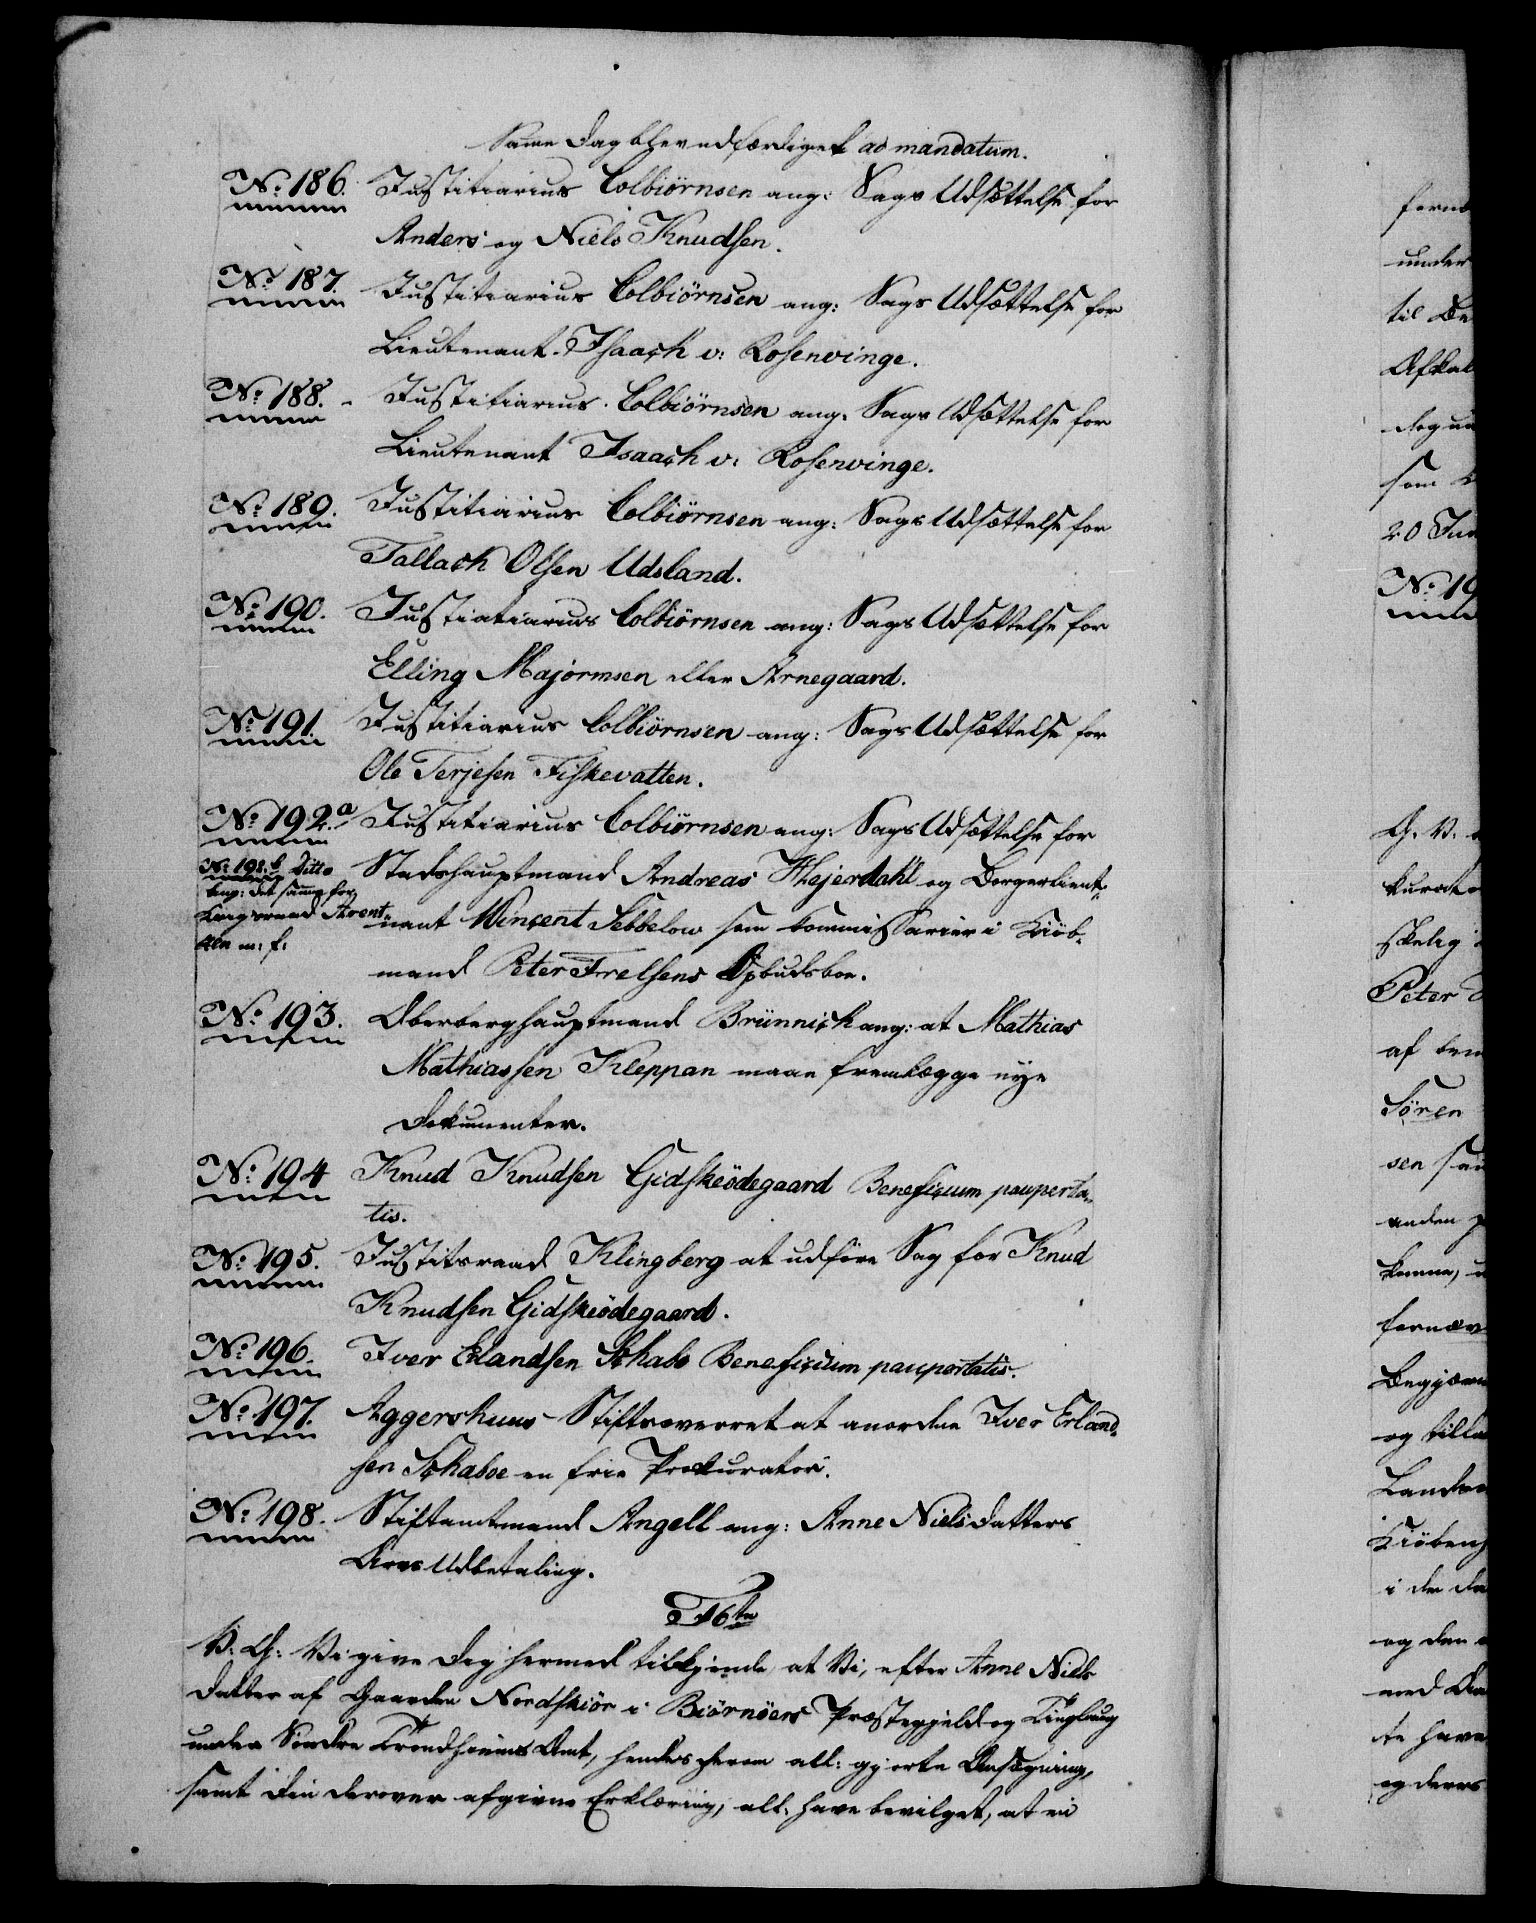 Samme Dag blev udfærdiget ad mandatum.
No: 186. Justitiarius Colbiörnsen ang: Sags Udsættelse for
Anders og Niels Knudsen.
No 187. Justitiarius Colbiörnsen ang: Sags Udsættelse for
Lieutenant Isaach v: Rosenvinge.
No: 188. - Justitiarius Colbiörnsen ang: Sags Udsættelse for
Lieutenant Isaach v: Rosenvinge.
No: 189. Justitiarius Colbiörnsen ang: Sags Udsættelse for
Tallach Olsen Udsland.
No: 190. Justiatiarius Colbiörnsen ang: Sags Udsættelse for
Elling Majormsen eller Arnegaard.
No 191. Justitiarius Colbiörnsen ang: Sags Udsættelse for
Ole Terjesen Fiskevatten.
No: 192.a Justitiarius Colbiörnsen ang: Sags Udsættelse for
No: 192.b Ditto
ang: det samme for
Stadshauptmand Andreas Hejerdahl og Borgerlieut-
nant Wincent Sebbelow som Kommissarier i Kiöb-
mand Peter Frelsens Opbudsboe.
No: 193. Oberberghauptmand Brünnich ang: at Mathias
Mathiassen Kleppan maae fremlægge nye
Dokumenter.
No: 194 Knud Knudsen Gidskeödegaard Beneficium pauperta-
tis.
No: 195. Justitsraad Klingberg at udföre Sag for Knud
Knudsen Gidskeödegaard.
No: 196. Iver Erlandsen Schabo Beneficium paupertatis.
No: 197. Aggershuus Stiftsoverret at anordne Iver Erland-
sen Schaboe en frie Prokurator.
No: 198. Stiftamtmand Angell ang: Anne Nielsdatters
Arvs Udbetaling.
T. 16de
V. G: Vi give Dig hermed tilkjende, at Vi, efter Anne Niels
datter af Gaarden Nordskiör i Biörnöers Præstegjeld og Tinglaug
under Söndre Trondhiems Amt, hendes herom all: gjorte Ansøgning,
samt Din derover afgivne Erklæring, all: have bevilget, at en
under
til Be
dog
som
20 Jun
No: 19
G. V.
Peter
af
Sören
sen
anden
og till
Kiöbenh
i de
og den
med
te have
og deres